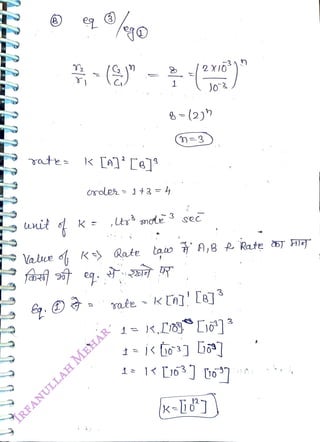 Ⓑ eq ③/eq ①
r₃/r₁ = (C₃/C₁)ⁿ = 8/1 = (2×10⁻³/10⁻³)ⁿ
8 = (2)ⁿ
n=3
rate = K [A]¹ [B]³
order = 1+3 = 4
unit of K = Ltr³ mole⁻³ sec⁻
Value of K => Rate law में A, B & Rate का मान
किसी भी eq. से रखने पर
Eq. ① से = rate = K [A]¹ [B]³
1 = K [10⁻³]
1 = K [10⁻³] [10⁻⁹]
1 = K [10⁻³] [10⁻⁹]
K = [10¹²]
IRFANULLAH MEHAR